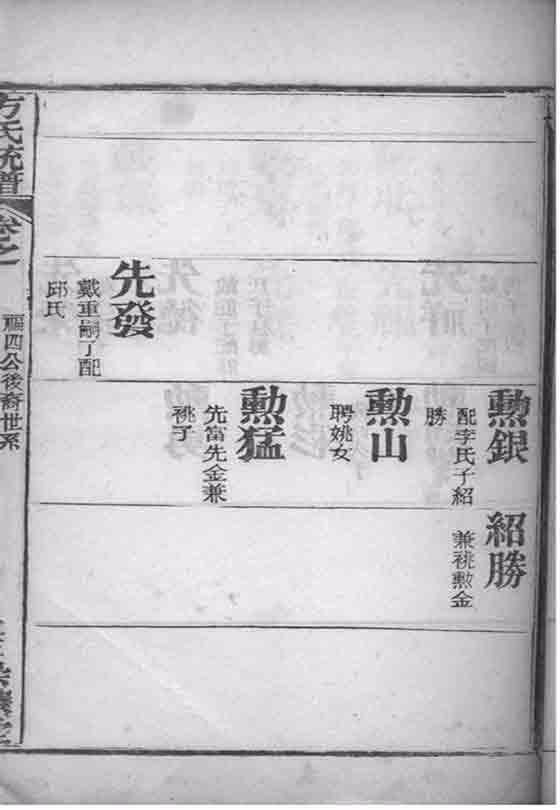 勲銀
配李氏子紹
勝
紹勝
兼祧勲金
勲山
聘姚女
勲猛
先富先金兼
祧子
先發
戴重嗣丁配
邱氏
方氏統譜
卷之
福四公後裔世系